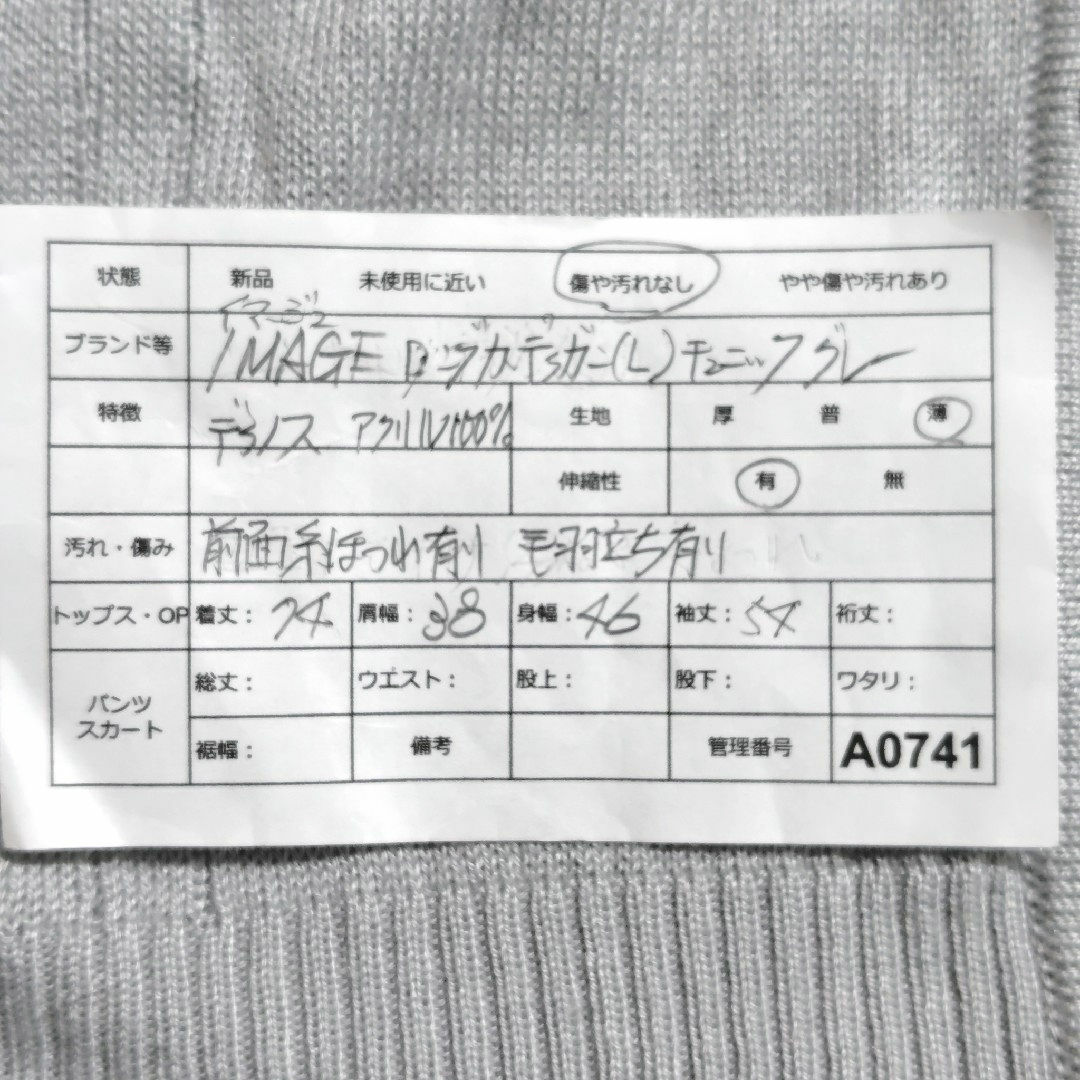 状態 新品 未使用に近い 傷や汚れなし やや傷や汚れあり
イマージュ
ブランド等 IMAGE ロングカーディガン(L) チュニック グレー
特徴 ディノス アクリル100% 生地 厚 普 薄
伸縮性 有 無
汚れ・傷み 前面糸ほつれ有り 毛羽立ち有り
トップス・OP 着丈: 74 肩幅: 38 身幅: 46 袖丈: 54 裄丈:
パンツ スカート 総丈: ウエスト: 股上: 股下: ワタリ:
裾幅: 備考 管理番号 A0741